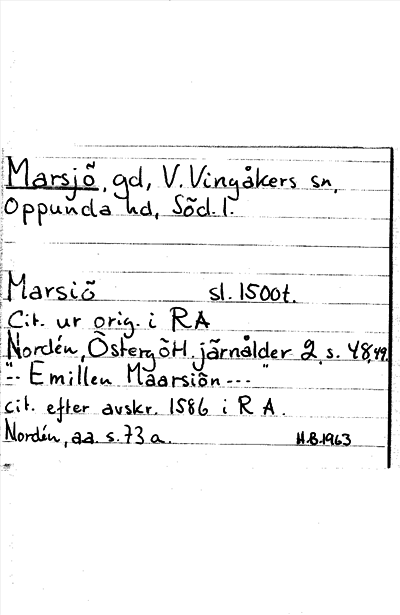 Marsjö, gd, V. Vingåkers sn,
Oppunda hd, Söd. l.
Marsiö sl. 1500t.
Cit. ur orig. i RA
Nordén, Östergötl. järnålder 2, s. 48,49.
"-- Emillen Maarsiön --- "
cit. efter avskr. 1586 i RA.
Nordén, aa. s. 73 a. H.B. 1963